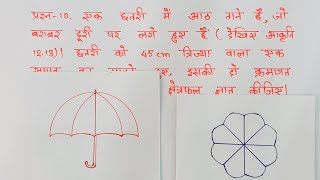 प्रश्न-10. एक छतरी में आठ ताने हैं, जो
बराबर दूरी पर लगे हुए हैं (देखिए आकृति
12.13)। छतरी को 45 cm त्रिज्या वाला एक
इसकी दो क्रमागत
ज्ञात कीजिए।